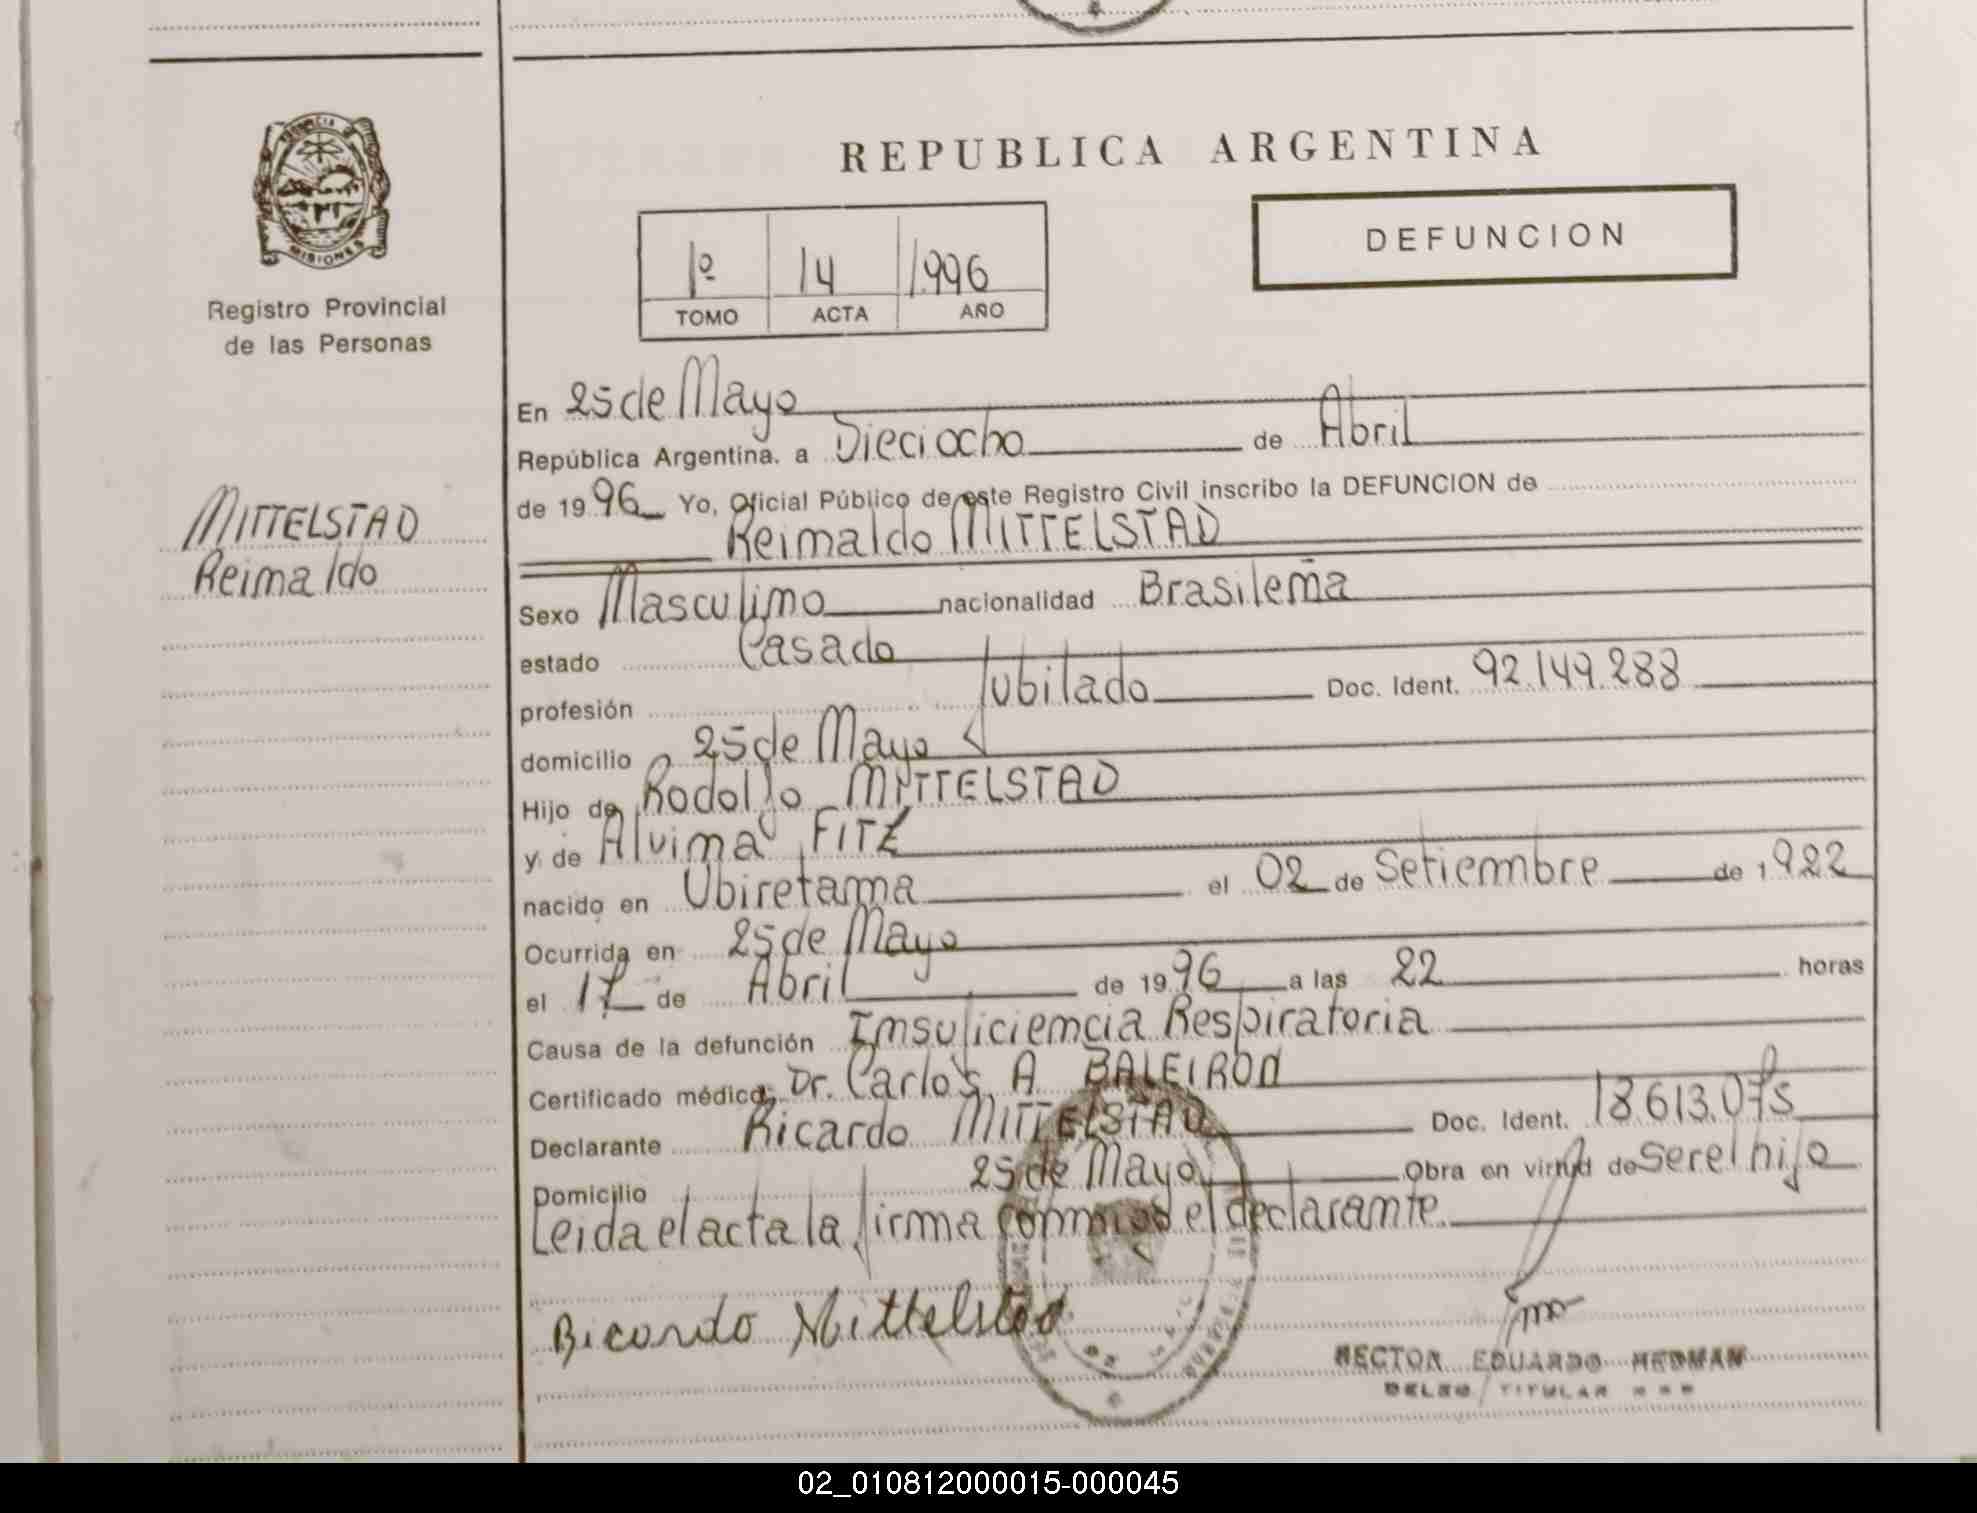 REPUBLICA ARGENTINA
PROVINCIA DE
MISIONES
Registro Provincial
de las Personas
1º 14 1996
TOMO ACTA AÑO
DEFUNCION
MITTELSTAD
Reinaldo
En 25 de Mayo
República Argentina. a Dieciocho de Abril
de 1996 Yo, Oficial Público de este Registro Civil inscribo la DEFUNCION de
Reinaldo MITTELSTAD
Sexo Masculino nacionalidad Brasileña
estado Casado
profesión Jubilado Doc. Ident. 92.149.288
domicilio 25 de Mayo
Hijo de Rodolfo MITTELSTAD
y de Alvina FITZ
nacido en Ubiretama el 02 de Setiembre de 1922
Ocurrida en 25 de Mayo
el 17 de Abril de 1996 a las 22 horas
Causa de la defunción Insuficiencia Respiratoria
Certificado médico: Dr. Carlos A BALEIRON
Declarante Ricardo MITTELSTAD Doc. Ident. 18.613.075
Domicilio 25 de Mayo Obra en virtud de ser el hijo
Leida el acta la firma conmigo el declarante.
Ricardo Mittelstad
HECTOR EDUARDO HEDMAN
DELEG. TITULAR
02_010812000015-000045